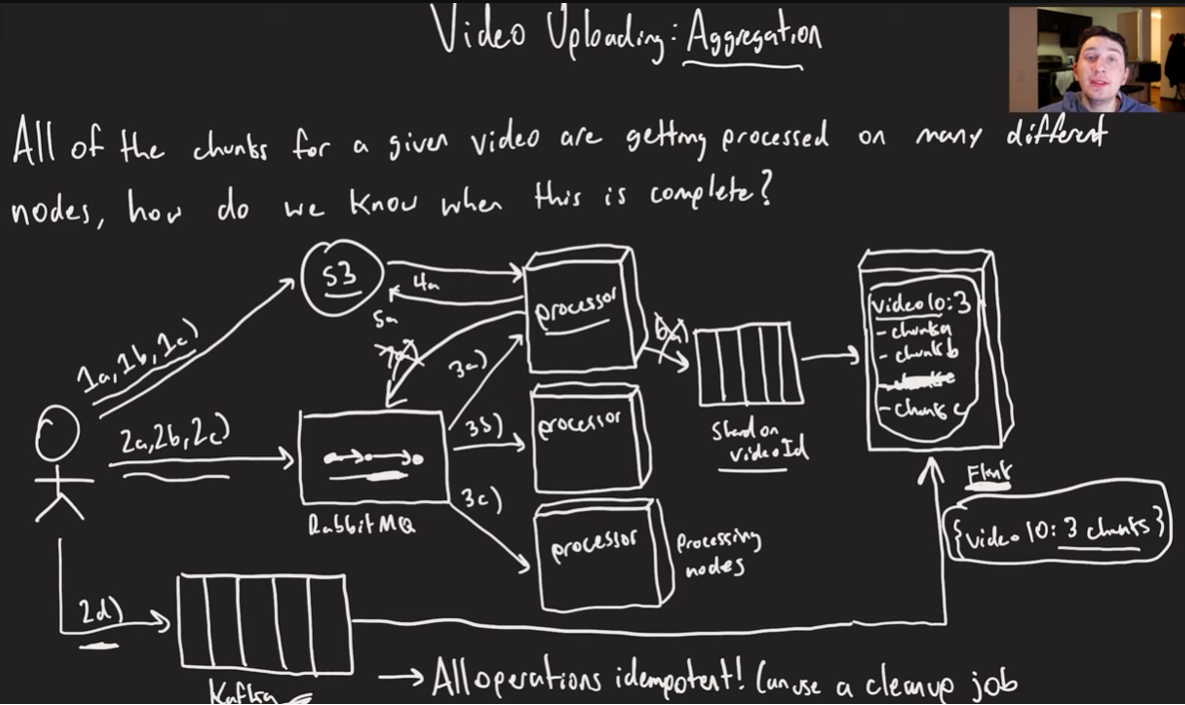 Video Uploading: Aggregation
All of the chunks for a given video are getting processed on many different
nodes, how do we know when this is complete?
S3
4a
5a
1a, 1b, 1c)
2a, 2b, 2c)
RabbitMQ
7a)
3a)
3b)
3c)
processor
processor
processor
Processing
nodes
6a)
Shard on
videoId
video 10: 3
- chunk a
- chunk b
- chunk c
Flink
{video 10: 3 chunks}
2d)
Kafka
→ All operations idempotent! Can use a cleanup job